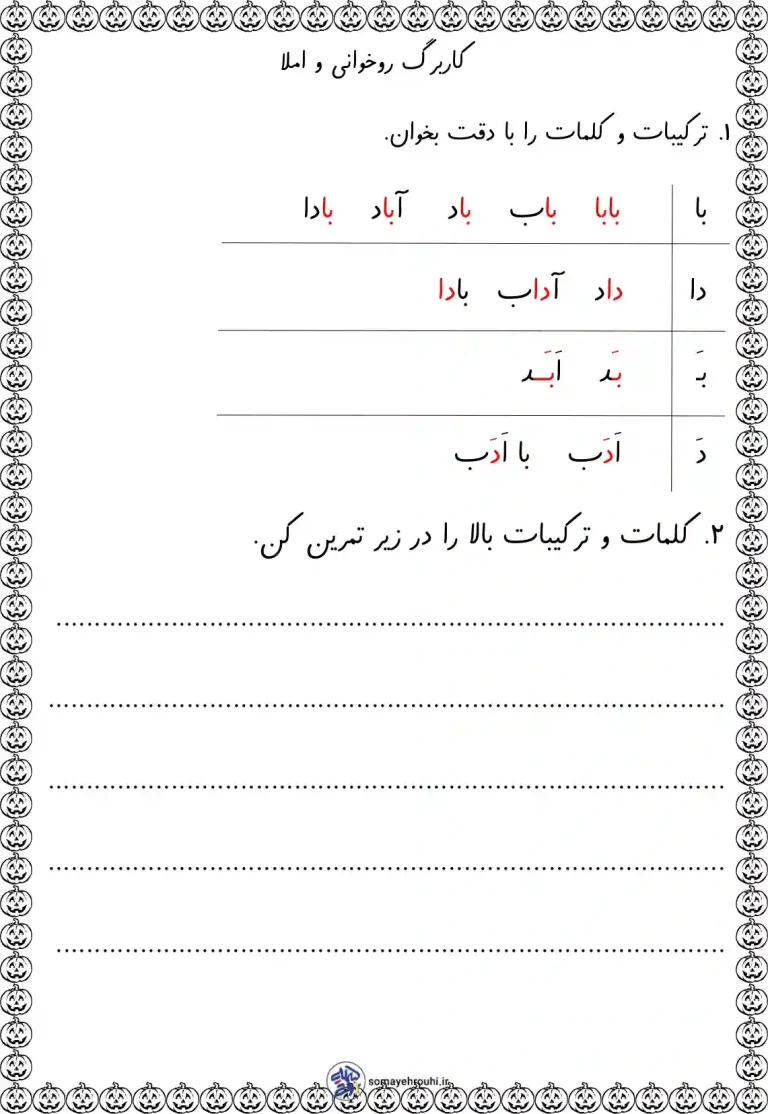 کاربرگ روخوانی و املا
۱. ترکیبات و کلمات را با دقت بخوان.
با بابا باب باد آباد بادا
دا داد آداب بادا
بَـ بَد اَبَـد
دَ اَدَب با اَدَب
۲. کلمات و ترکیبات بالا را در زیر تمرین کن.
somayehrouhi.ir